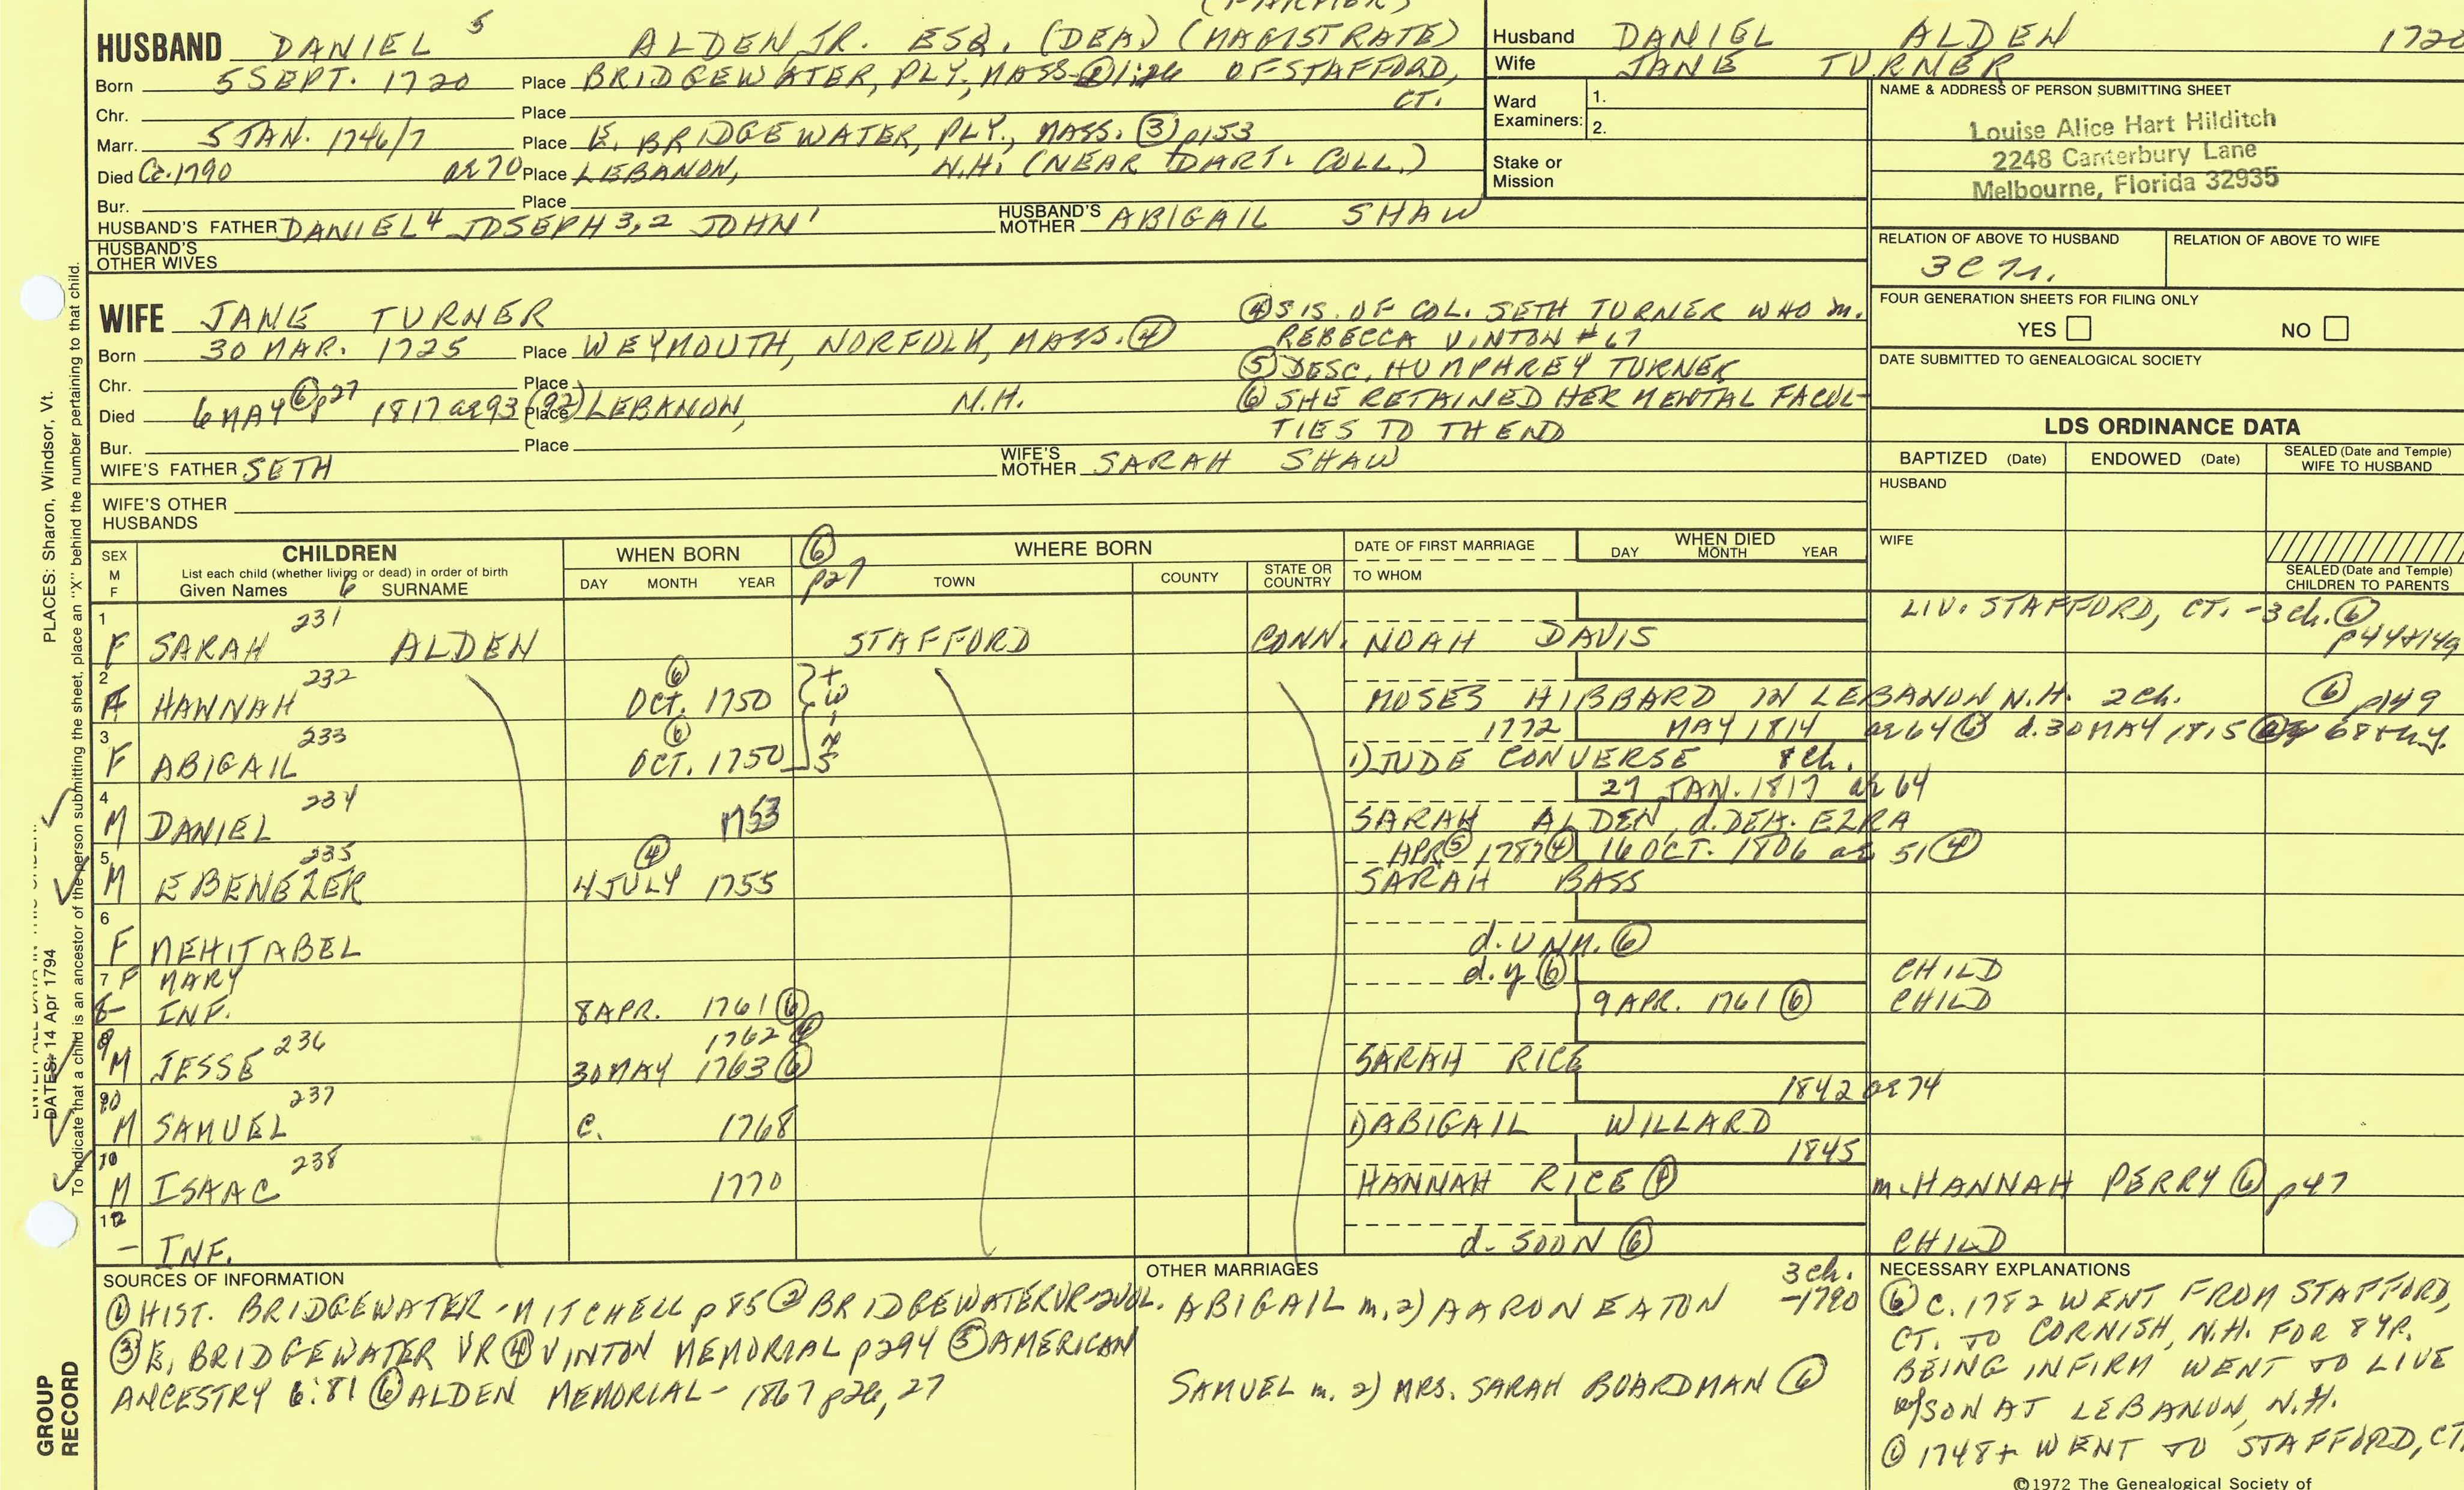 (FARMER)
HUSBAND DANIEL 5 ALDEN JR. ESQ. (DEA) (MAGISTRATE)
Born 5 SEPT. 1720 Place BRIDGEWATER, PLY, MASS OF STAFFORD,
CT.
Chr. Place
Marr. 5 JAN. 1746/7 Place E. BRIDGEWATER, PLY., MASS. (3) p153
Died Ca. 1790 ae 70 Place LEBANON, N.H. (NEAR DART. COLL.)
Bur. Place
HUSBAND'S FATHER DANIEL 4 JOSEPH 3,2 JOHN 1 HUSBAND'S MOTHER ABIGAIL SHAW
HUSBAND'S OTHER WIVES
Husband DANIEL ALDEN 1720
Wife JANE TURNER
Ward Examiners: 1.
2.
Stake or Mission
NAME & ADDRESS OF PERSON SUBMITTING SHEET
Louise Alice Hart Hilditch
2248 Canterbury Lane
Melbourne, Florida 32935
RELATION OF ABOVE TO HUSBAND RELATION OF ABOVE TO WIFE
FOUR GENERATION SHEETS FOR FILING ONLY
YES NO
DATE SUBMITTED TO GENEALOGICAL SOCIETY
WIFE JANE TURNER
Born 30 MAR. 1725 Place WEYMOUTH, NORFOLK, MASS. (4)
Chr. Place
Died 6 MAY (6) p27 1817 ae 93 (92) Place LEBANON, N.H.
Bur. Place
WIFE'S FATHER SETH WIFE'S MOTHER SARAH SHAW
WIFE'S OTHER HUSBANDS
(4) SIS. OF COL. SETH TURNER WHO m.
REBECCA VINTON #67
(5) DESC. HUMPHREY TURNER
(6) SHE RETAINED HER MENTAL FACUL-
TIES TO TH END
LDS ORDINANCE DATA
BAPTIZED (Date) ENDOWED (Date) SEALED (Date and Temple) WIFE TO HUSBAND
HUSBAND
WIFE
SEALED (Date and Temple) CHILDREN TO PARENTS
SEX M F
CHILDREN
List each child (whether living or dead) in order of birth
Given Names 6 SURNAME
WHEN BORN
DAY MONTH YEAR
(6) p27
WHERE BORN
TOWN COUNTY STATE OR COUNTRY
DATE OF FIRST MARRIAGE
TO WHOM
WHEN DIED
DAY MONTH YEAR
1 F SARAH 231 ALDEN STAFFORD CONN. NOAH DAVIS LIV. STAFFORD, CT. - 3 ch. (6)
2 F HANNAH 232 OCT. 1750 (6) MOSES HIBBARD IN LEBANON N.H. 2 ch. (6) p149
1772 MAY 1814 ae 64 (6) d. 30 MAY 1815
3 F ABIGAIL 233 OCT. 1750 (6) 1) JUDE CONVERSE 8 ch.
27 JAN. 1817 ae 64
4 M DANIEL 234 1753 SARAH ALDEN, d. DEA. EZRA
APR (5) 1787 (4) 16 OCT. 1806 ae 51 (4)
5 M EBENEZER 235 4 JULY 1755 (4) SARAH BASS
6 F MEHITABEL d. UNM. (6)
7 F MARY d. y (6) CHILD
8 - INF. 8 APR. 1761 (6) 9 APR. 1761 (6) CHILD
1762 (4)
9 M JESSE 236 30 MAY 1763 (6) SARAH RICE
1842 ae 74
10 M SAMUEL 237 C. 1768 1) ABIGAIL WILLARD
1845
M ISAAC 238 1770 HANNAH RICE (4) m. HANNAH PERRY (6) p47
12 - INF. d. SOON (6) CHILD
SOURCES OF INFORMATION
(1) HIST. BRIDGEWATER - MITCHELL p 85 (2) BRIDGEWATER VR - 2 VOL.
(3) E. BRIDGEWATER VR (4) VINTON MEMORIAL p294 (5) AMERICAN
ANCESTRY 6:81 (6) ALDEN MEMORIAL - 1867 p26, 27
OTHER MARRIAGES
3 ch.
ABIGAIL m. 2) AARON EATON -1790
SAMUEL m. 2) MRS. SARAH BOARDMAN (6)
NECESSARY EXPLANATIONS
(6) C. 1782 WENT FROM STAFFORD,
CT. TO CORNISH, N.H. FOR 8 YR.
BEING INFIRM WENT TO LIVE
w/SON AT LEBANON, N.H.
(1) 1748+ WENT TO STAFFORD, CT.
©1972 The Genealogical Society of
PLACES: Sharon, Windsor, Vt.
DATES: 14 Apr 1794
To indicate that a child is an ancestor of the person submitting the sheet, place an "X" behind the number pertaining to that child.
GROUP RECORD